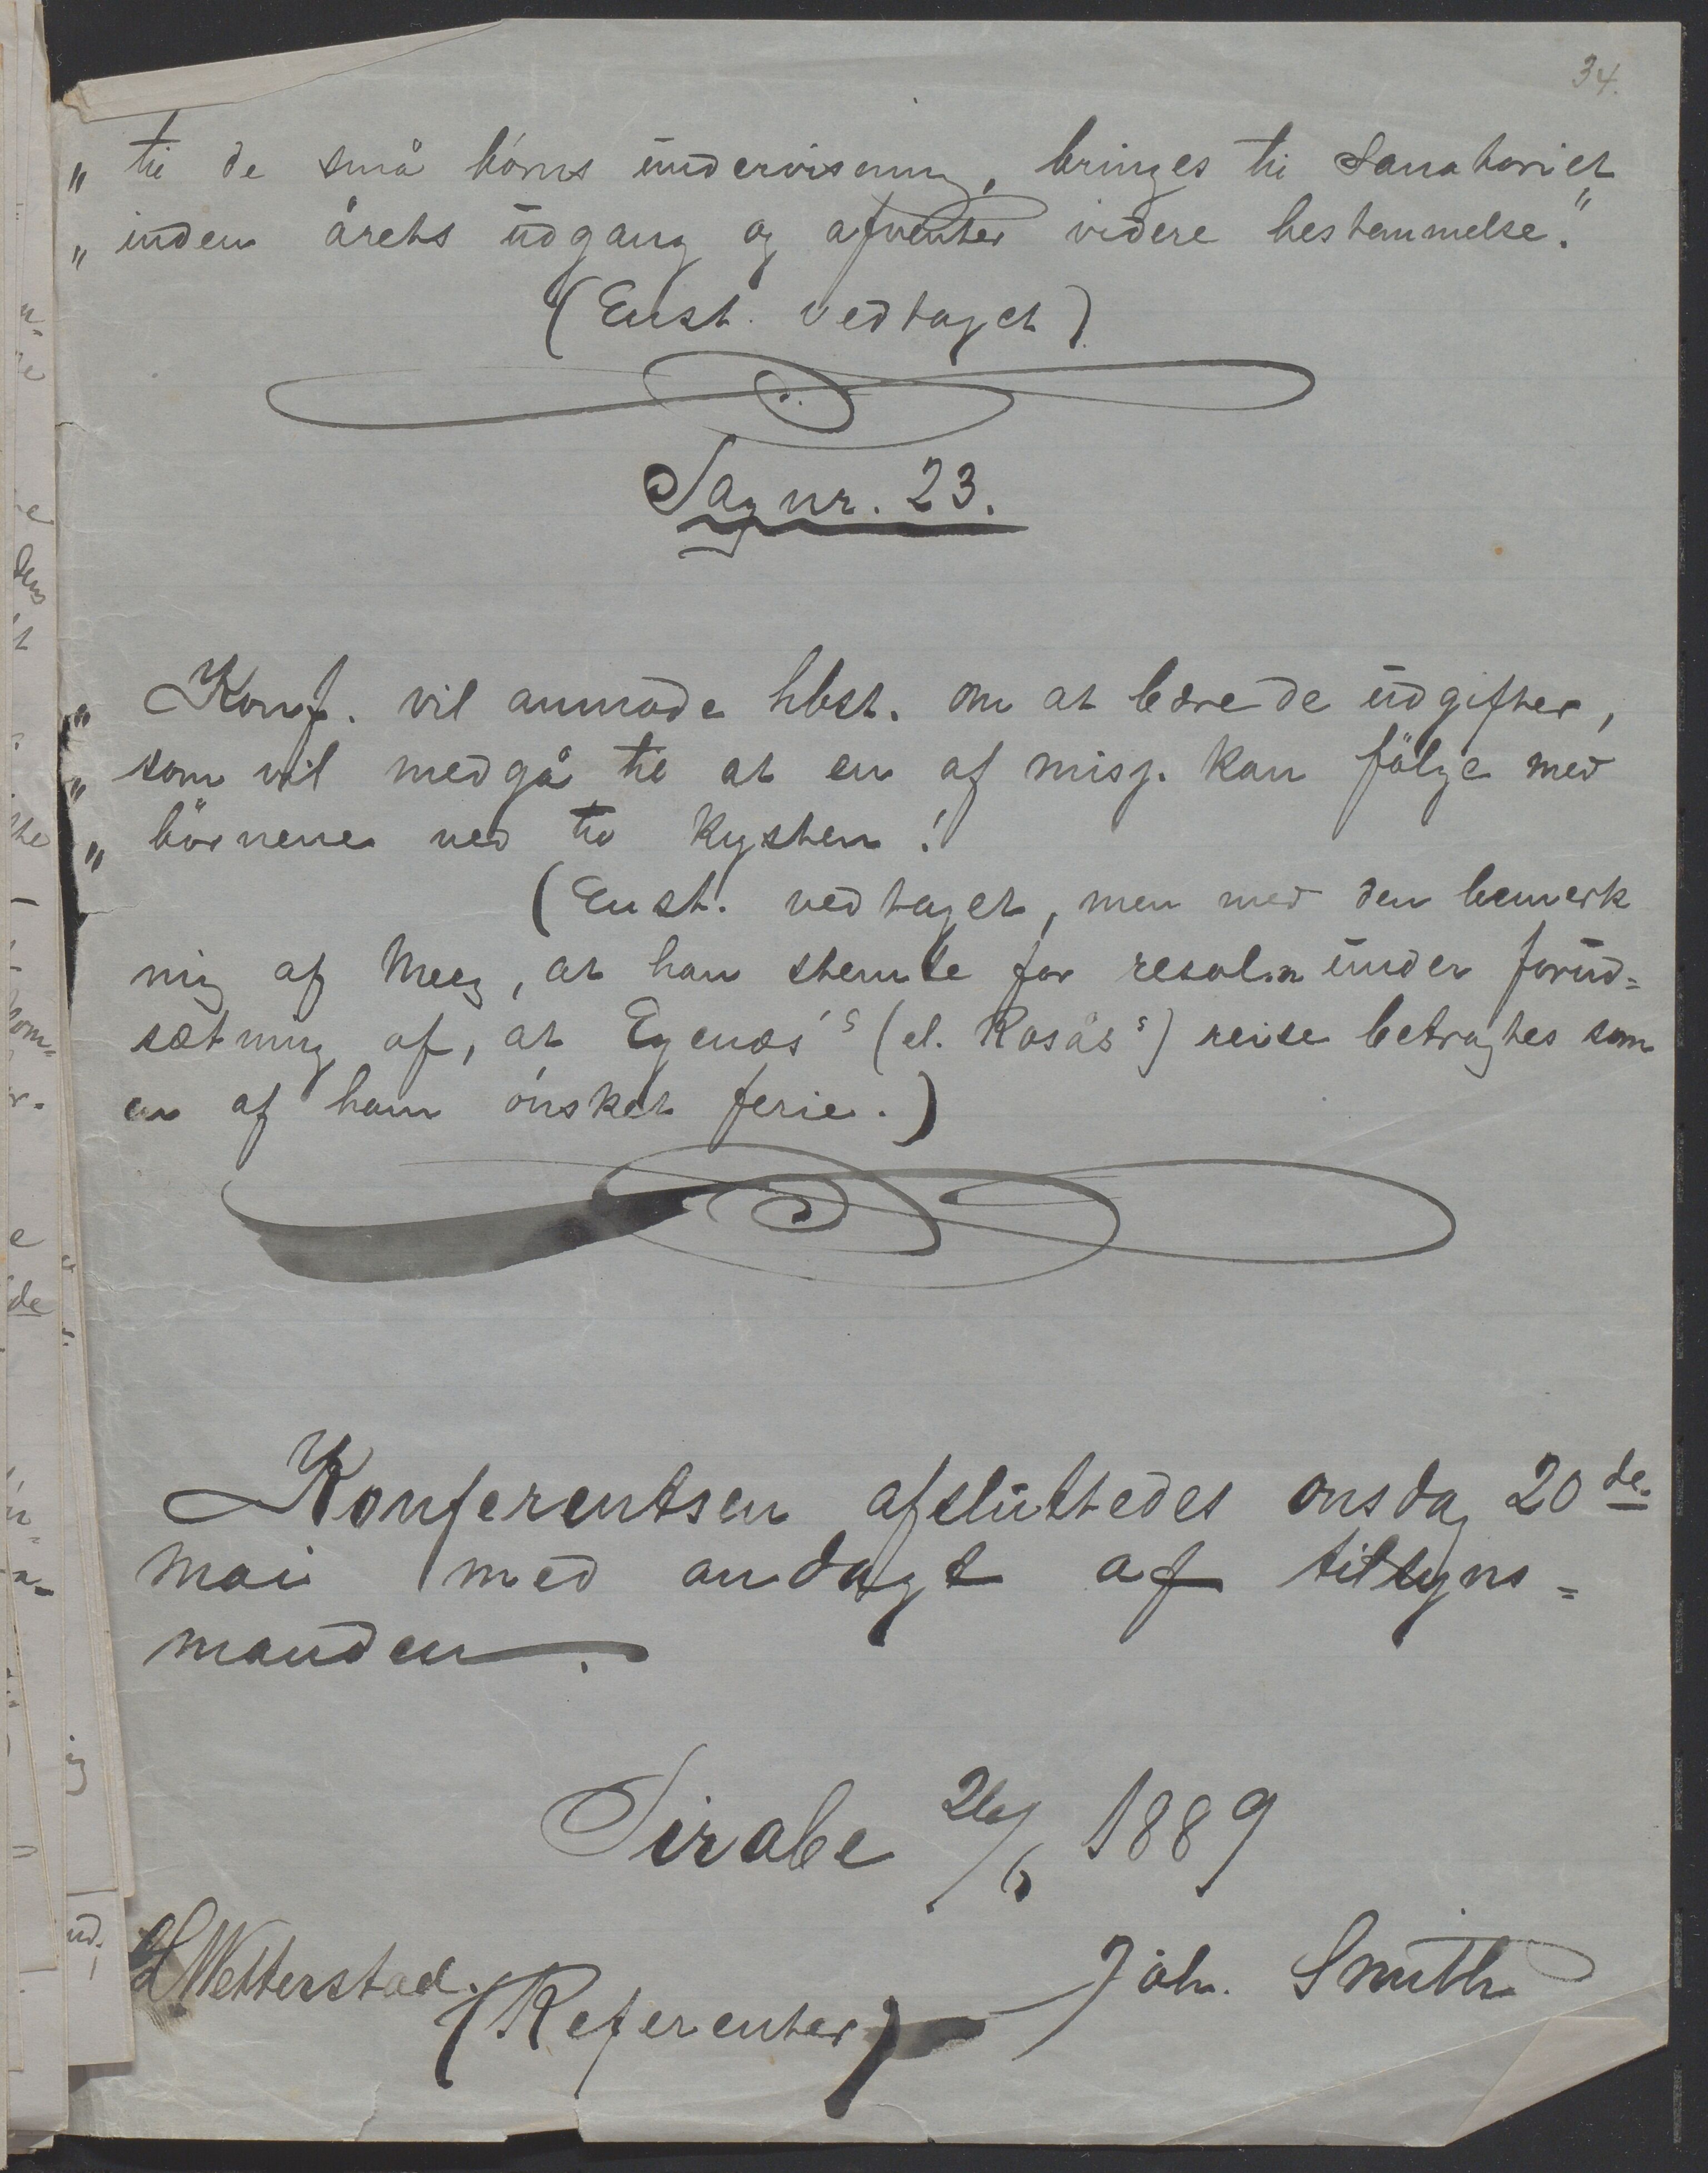 34.
" til de små börns undervisning, bringes til Sanatoriet
" inden årets udgang og afventer videre bestemmelse."
(Enst. vedtaget)
Sag nr. 23.
" Konf. vil anmode hbst. om at bære de udgifter,
" som vil medgå til at en af misj. kan fölge med
" börnene ned til kysten!
(Enst. vedtaget, men med den bemerk
nig af Meeg, at han stemte for resol.n under forud=
sætning af, at Egenæs's (el. Rosås's) reise betragtes som
en af ham önsket ferie.)
Konferentsen afsluttedes onsdag 20de
mai med andagt af tilsyns=
manden.
Sirabe 26/6 1889
L Wetterstad. Joh. Smith
(Referenter)